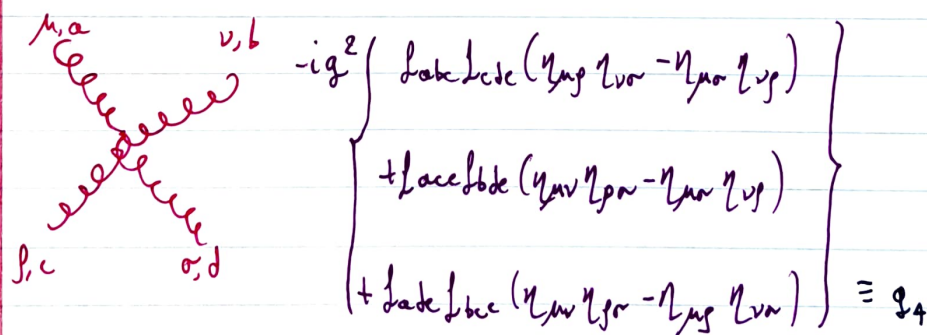 μ,a ν,b
-ig² { f_abe f_cde (η_μρ η_νσ - η_μσ η_νρ)
+ f_ace f_bde (η_μν η_ρσ - η_μσ η_νρ)
ρ,c σ,d
+ f_ade f_bce (η_μν η_ρσ - η_μρ η_νσ) } ≡ g_4